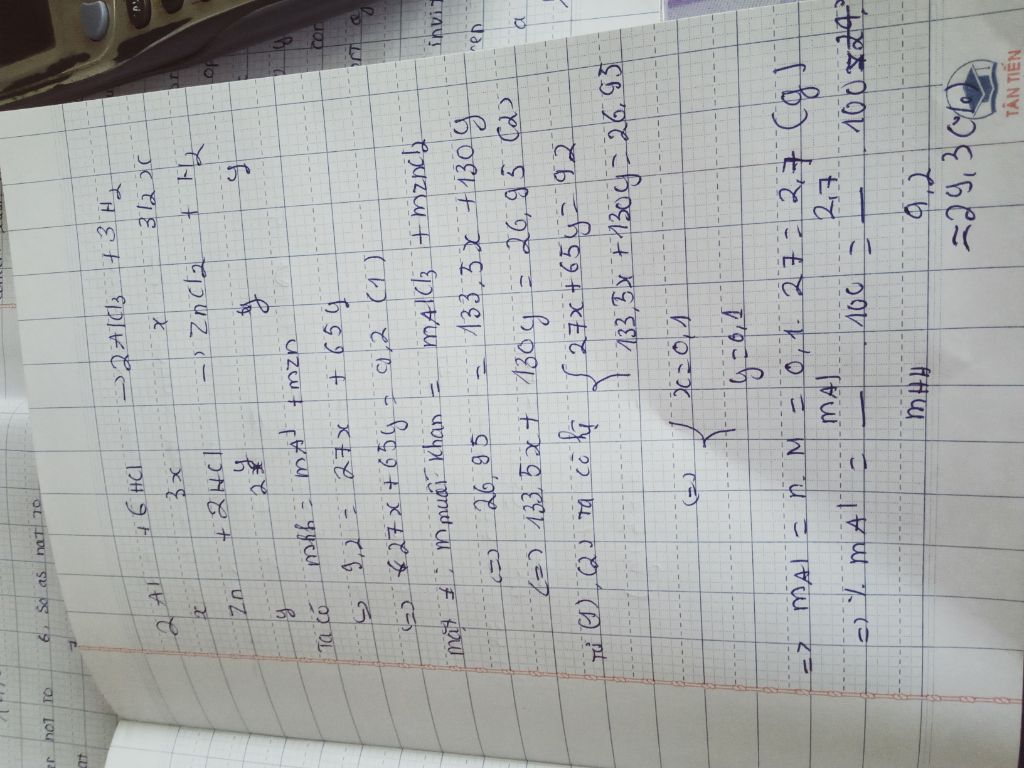 2Al + 6HCl → 2AlCl3 + 3H2
x 3x x 3/2x
Zn + 2HCl → ZnCl2 + H2
y 2y y y
Ta có mhh = mAl + mZn
<=> 9,2 = 27x + 65y
<=> 27x + 65y = 9,2 (1)
mặt ≠: m muối khan = mAlCl3 + mZnCl2
<=> 26,95 = 133,5x + 130y
<=> 133,5x + 130y = 26,95 (2)
từ (1), (2) ta có hệ { 27x + 65y = 9,2
133,5x + 130y = 26,95
<=> { x = 0,1
y = 0,1
=> mAl = n. M = 0,1. 27 = 2,7 (g)
=> % mAl = mAl / mHH . 100 = 2,7 / 9,2 . 100
= 29,3 (%)
TÂN TIẾN
6, so as not to
er not to